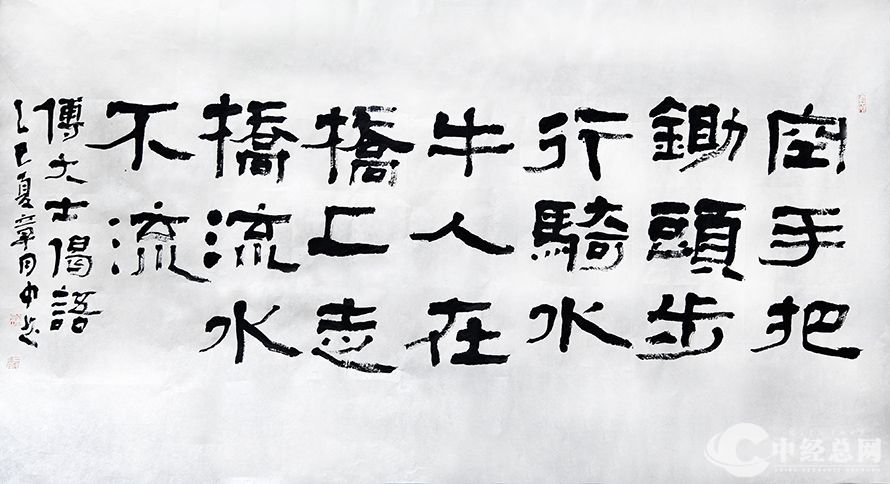 空手把
鋤頭步
行騎水
牛人在
橋上走
橋流水
不流
傅大士偈語
乙巳夏章
中经总网